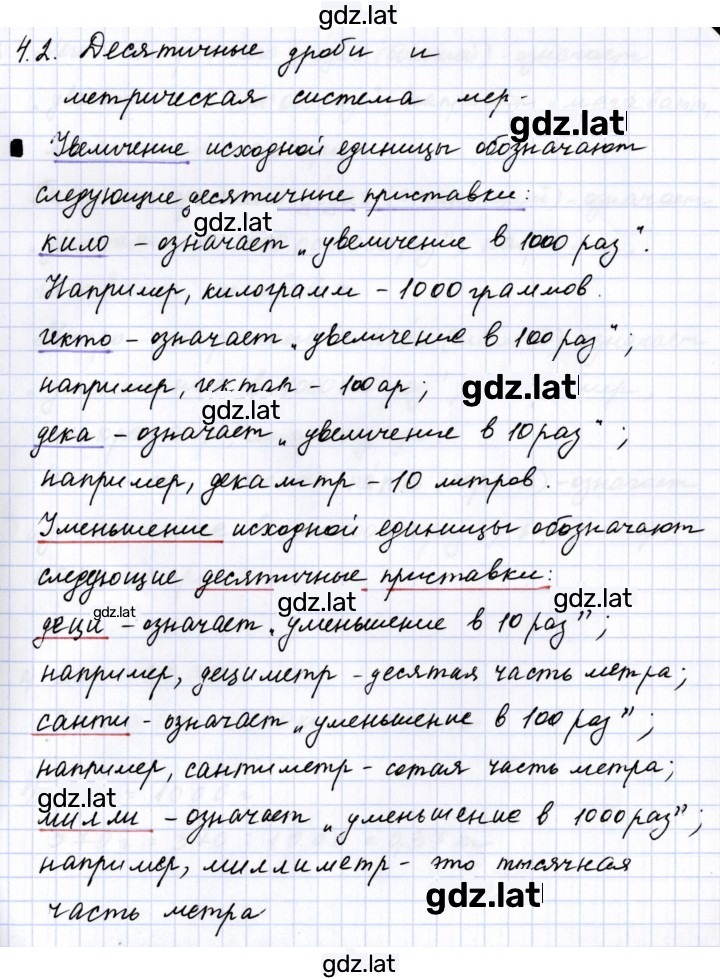 gdz.lat
4.2. Десятичные дроби и
метрическая система мер.
gdz.lat
Увеличение исходной единицы обозначают
следующие десятичные приставки:
gdz.lat
кило – означает „увеличение в 1000 раз".
Например, килограмм – 1000 граммов.
гекто – означает „увеличение в 100 раз";
например, гектар – 100 ар;
gdz.lat
gdz.lat
дека – означает „увеличение в 10 раз";
например, декалитр – 10 литров.
Уменьшение исходной единицы обозначают
следующие десятичные приставки:
gdz.lat
gdz.lat
gdz.lat
деци – означает „уменьшение в 10 раз";
например, дециметр – десятая часть метра;
санти – означает „уменьшение в 100 раз";
например, сантиметр – сотая часть метра;
gdz.lat
милли – означает „уменьшение в 1000 раз";
например, миллиметр – это тысячная
часть метра
gdz.lat
gdz.lat